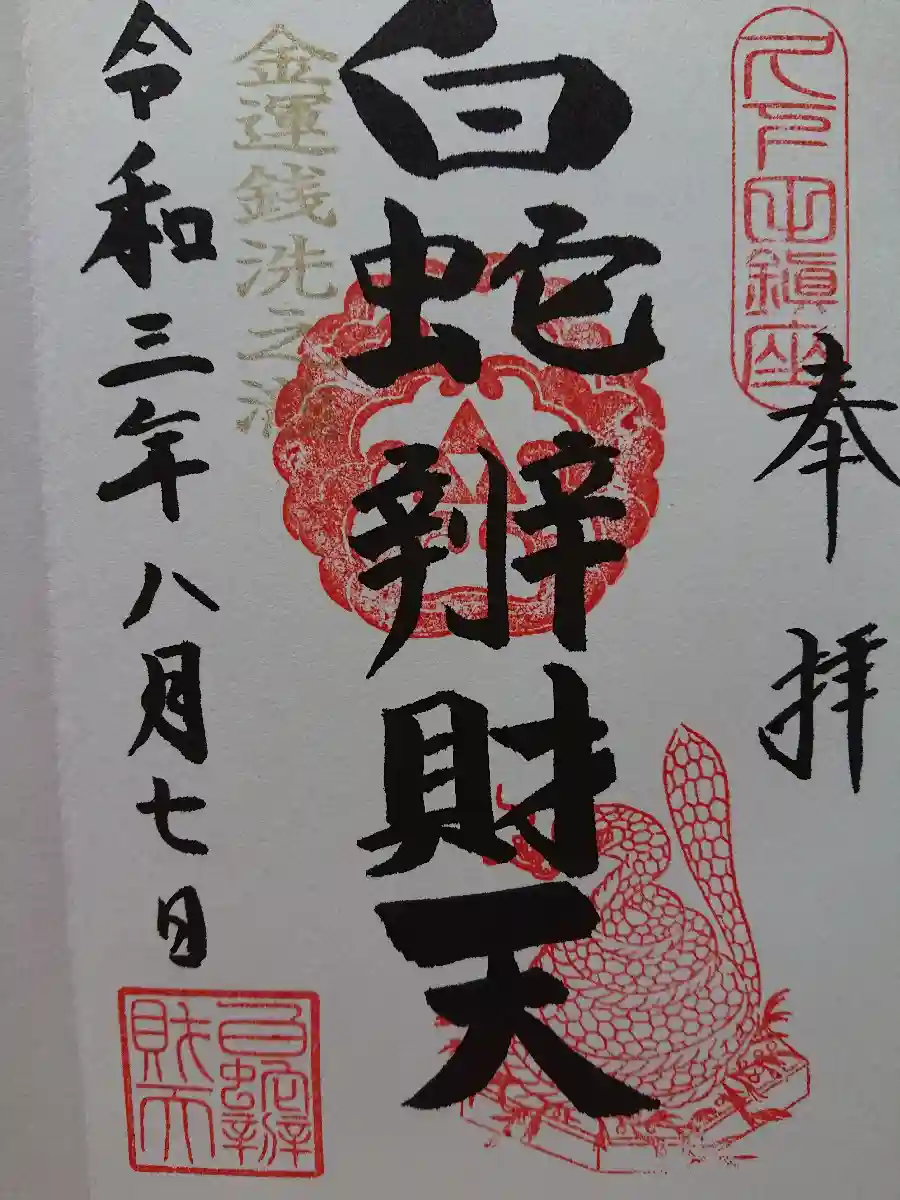 久下田鎮座
奉拝
白蛇辨財天
金運銭洗之滝
令和三年八月七日
白蛇辨財天